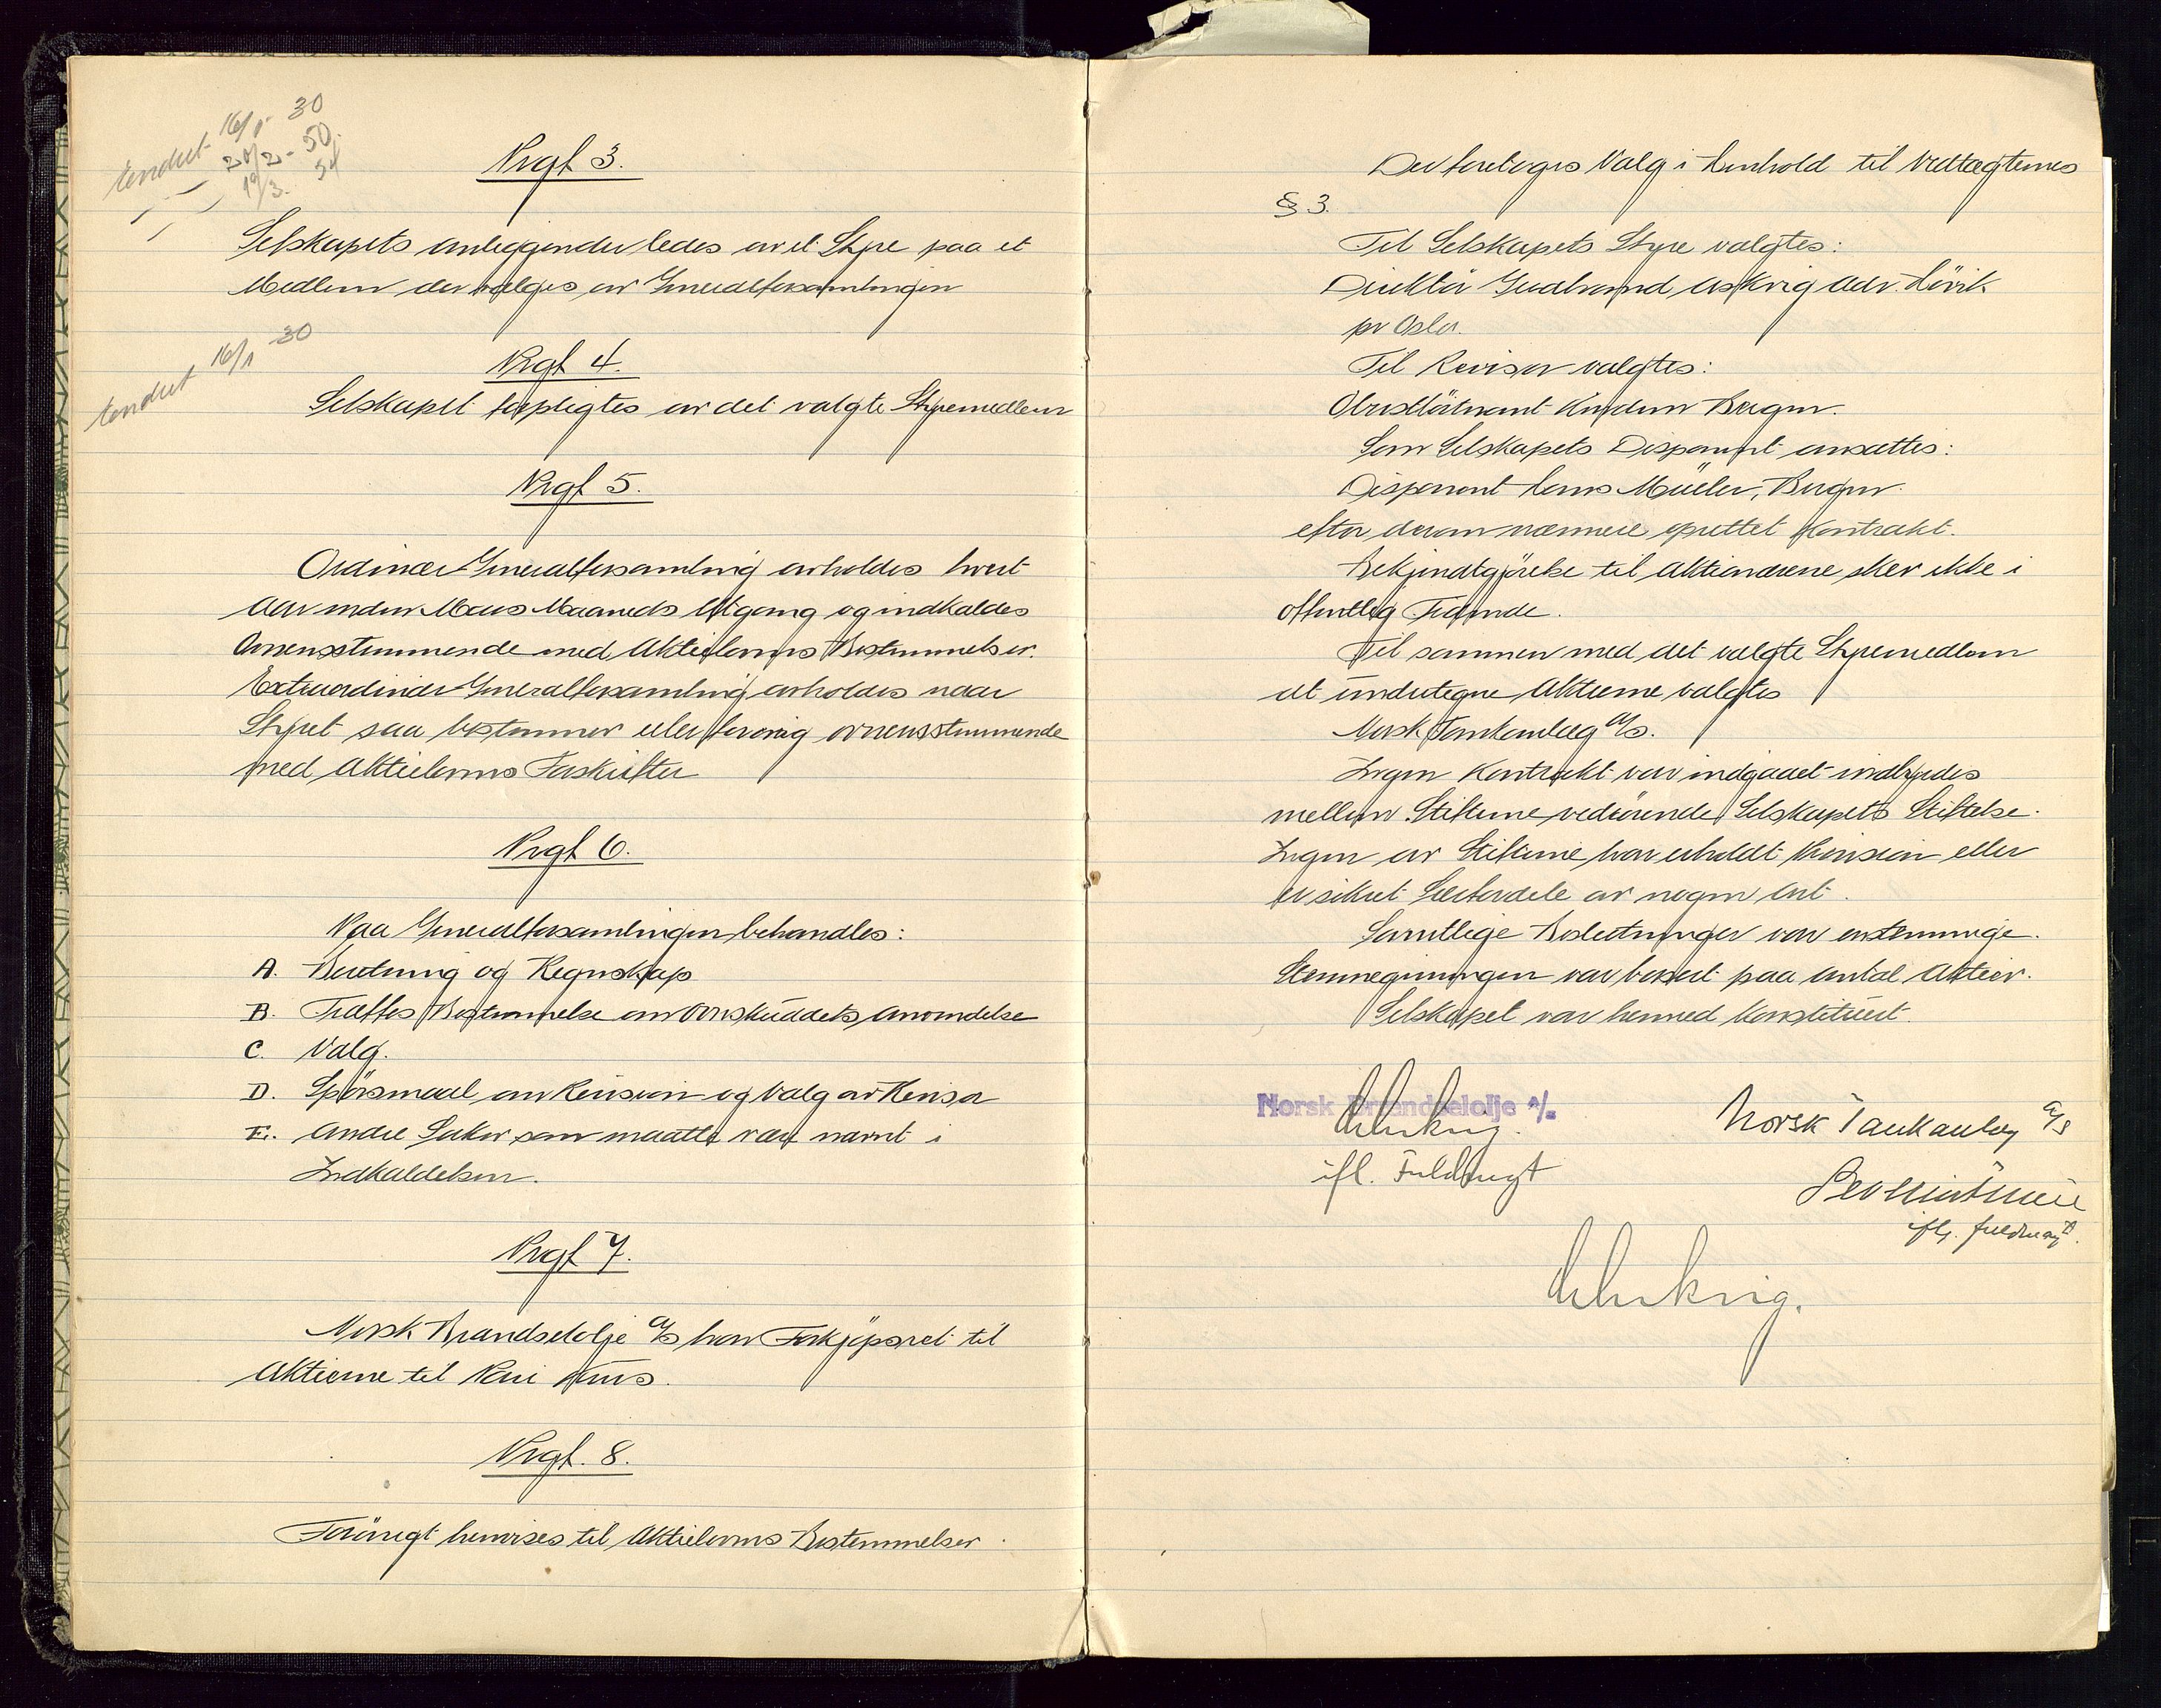 endret 16/1 30
20/2 - 50.
19/3. 54
Prgf 3.
Selskapets anliggender ledes av et Styre paa et
Medlem der vælges av Generalforsamlingen
endret 16/1 30
Prgf 4.
Selskapet forpligtes av det valgte Styremedlem
Prgf 5.
Ordinær Generalforsamling avholdes hvert
Aar inden Mars Maaneds Utgang og indkaldes
overensstemmende med Aktielovens Bestemmelser.
Extraordinær Generalforsamling avholdes naar
Styret saa bestemmer eller forøvrig overensstemmende
med Aktielovens Forskrifter
Prgf 6.
Paa Generalforsamlingen behandles:
A. Beretning og Regnskap
B. Træffes Bestemmelse om Overskuddets Anvendelse
C. Valg.
D. Spörsmaal om Revision og Valg av Revisor
E. Andre Saker som maatte være nævnt i
Indkaldelsen.
Prgf 7.
Norsk Brændselolje A/S har Forkjöpsret til
Aktierne til Pari Kurs.
Prgf. 8.
Forövrigt henvises til Aktielovens Bestemmelser.
Der foretoges Valg i Henhold til Vedtægternes
§ 3.
Til Selskapets Styre valgtes:
Direktör Gudbrand Askvig Adr. Hövik
pr Oslo.
Til Revisor valgtes:
Oberstlöitnant Bergen.
Som Selskapets Disponent ansattes:
Disponent Hans Müller, Bergen.
efter derom nærmere oprettet Kontrakt.
Bekjendtgjörelse til Aktionærene sker ikke i
offentlig Tidende.
Til sammen med det valgte Styremedlem
at undertegne Aktierne valgtes
Norsk Tankanlæg A/S.
Ingen Kontrakt var indgaaet indbyrdes
mellem Stifterne vedrörende Selskapets Stiftelse.
Ingen av Stifterne har erholdt Provision eller
er sikret Særfordele av nogen Art.
Samtlige Beslutninger var enstemmige.
Stemmegivningen var basert paa Antal Aktier.
Selskapet var hermed konstituert.
Norsk Brændselolje A/S
GAskvig.
ifl. Fuldmagt
Norsk Tankanlæg A/S
ifl. fuldmagt.
GAskvig.